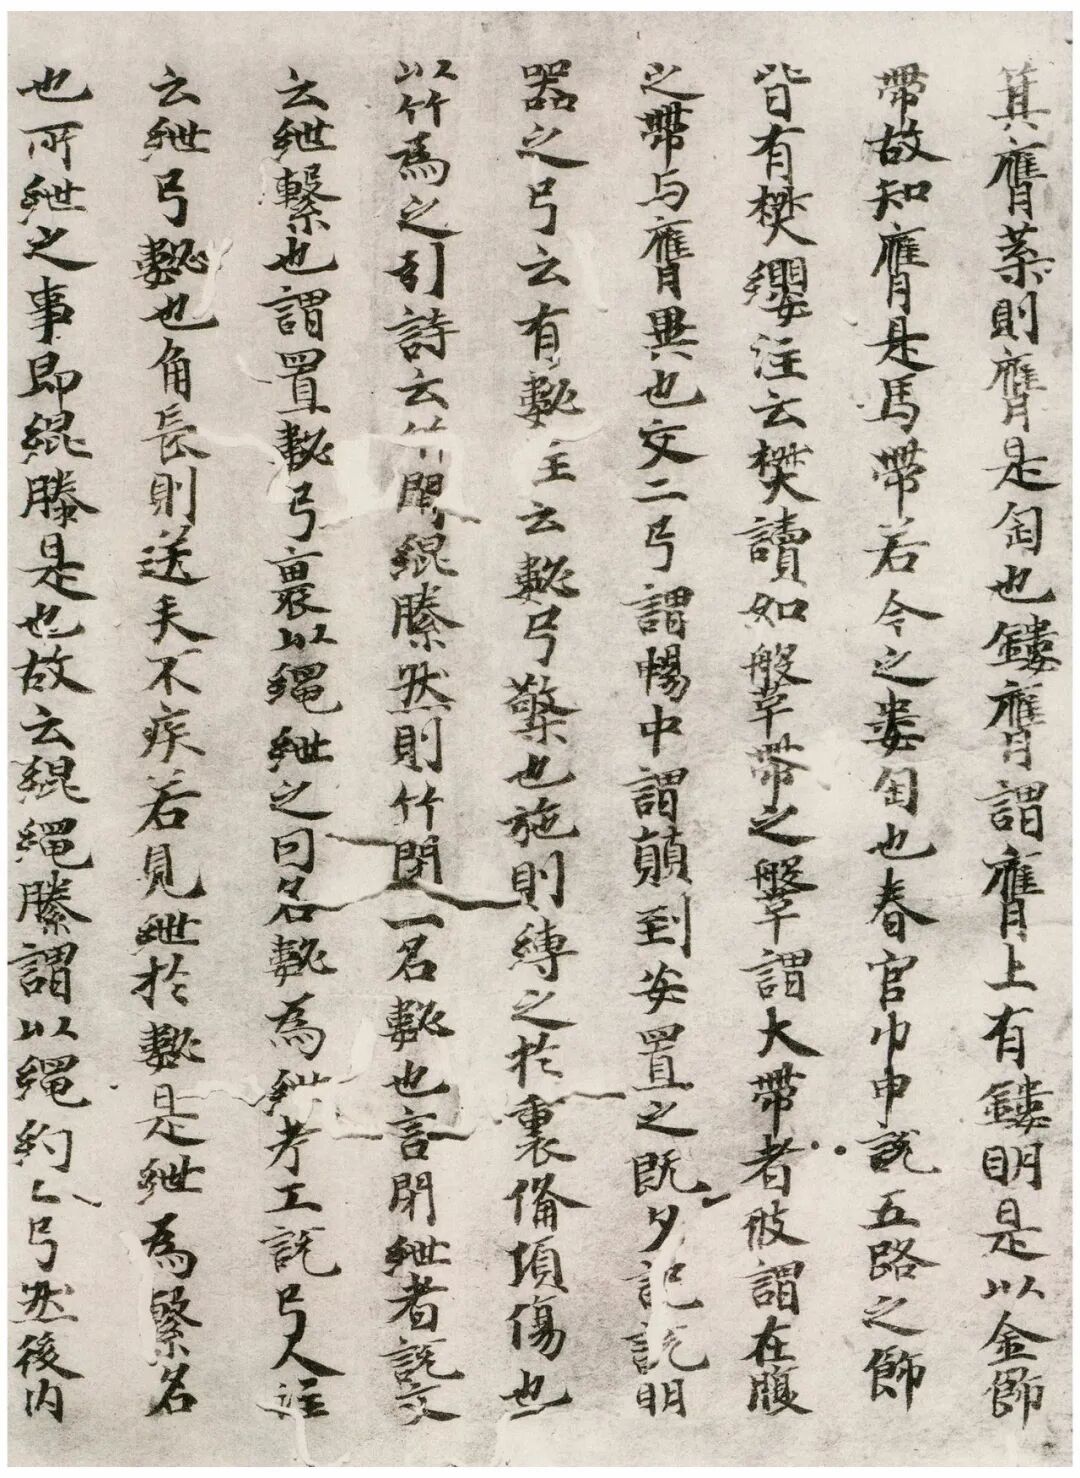 箕膺葉則膺是匈也鏤膺謂膺上有鏤明是以金飾
帶故知膺是馬帶若今之婁匈也春官巾車說五路之飾
皆有樊纓注云樊讀如鞶帶之鞶謂大帶者彼謂在腹
之帶与膺異也交二弓謂暢中謂顛到安置之既夕記說明
器之弓云有䪐注云䪐弓檠也施則縛之於裏備損傷也
以竹為之引詩云竹閉緄縢然則竹閉一名䪐也言閉紲者說文
云紲繫也謂置䪐弓裏以繩紲之因名䪐為紲考工記弓人注
云紲弓䪐也角長則送矢不疾若見紲於䪐是紲為繫名
也所紲之事即緄縢是也故云緄繩縢謂以繩約之弓然後内